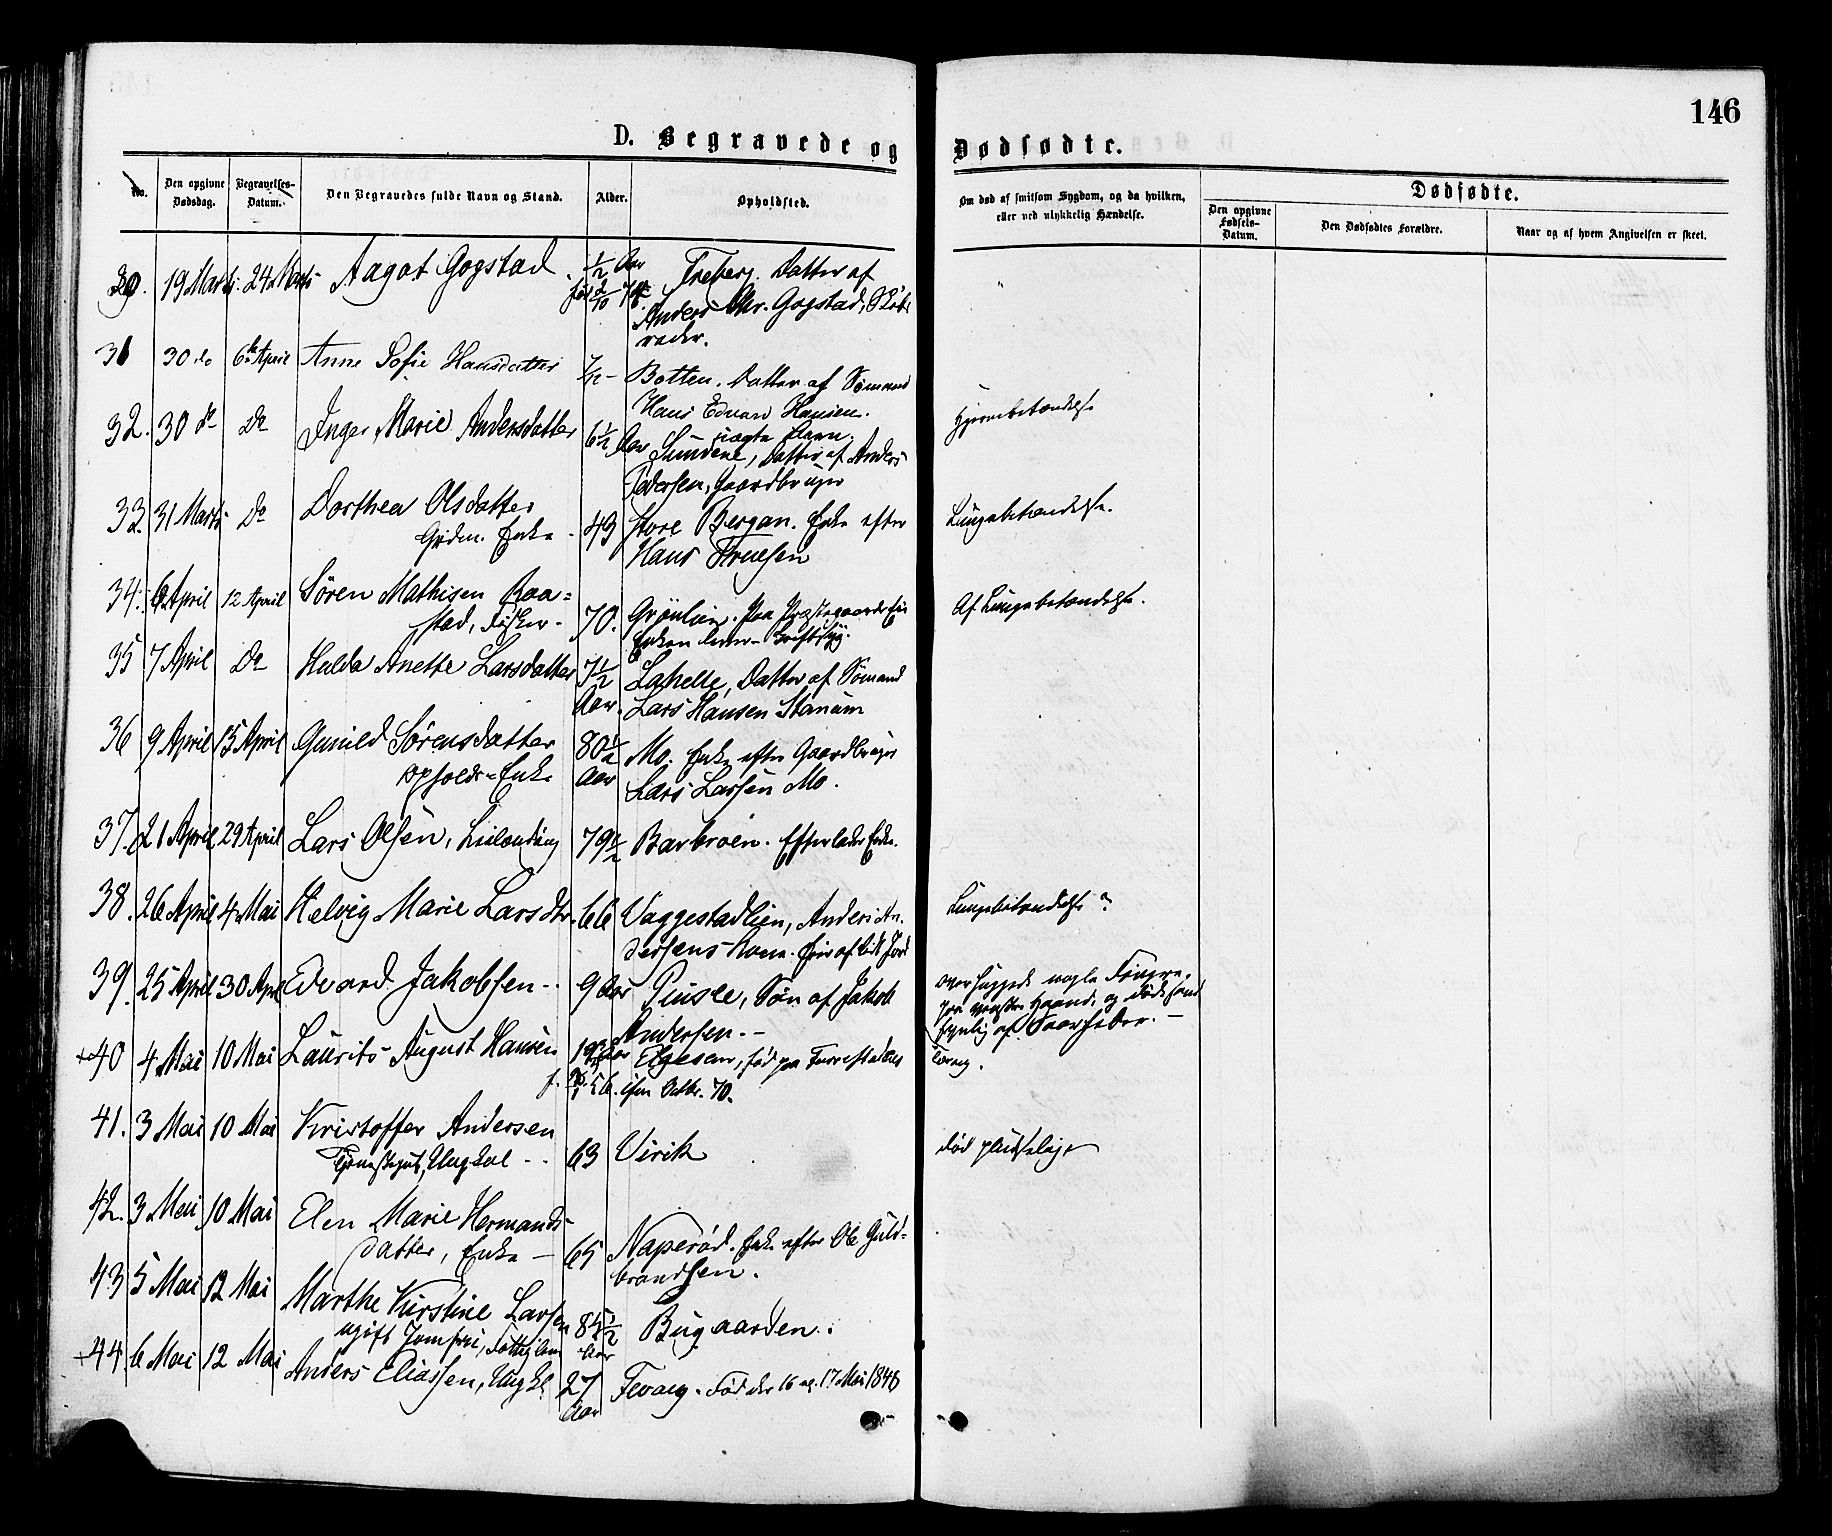 146
D. Begravede og Dødfødte.
No.
Den opgivne Dødsdag.
Begravelses-Datum.
Den Begravedes fulde Navn og Stand.
Alder.
Opholdsted.
Om død af smitsom Sygdom, og da hvilken,
eller ved ulykkelig Hændelse.
Dødfødte.
Den opgivne Fødsels-Datum.
Den Dødfødtes Forældre.
Naar og af hvem Angivelsen er skeet.
30. 19 Marts 24 Marts Aagot Gogstad. 1/2 Aar Freberg. Datter af
Anders Chr. Gogstad,
31 30 do 6te April Anne Sofie Hansdatter Botten. Datter af Sømand
Hans Edvard Hansen.
32. 30 do Do Inger Marie Andersdatter 6 1/2 Aar Sundene, Datter af Anders
Pedersen, Gaardbruger
Hjernebetændelse
33. 31 Marts Do Dorthea Olsdatter
Grdm. Enke 49 Store Bergan. Enke efter
Hans Truesen
Lungebetændelse.
34. 6 April 12 April Søren Mathisen Raa-
stad, Fisker 70.
Af Lungebetændelse.
35 7 April Do Hulda Anette Larsdatter 7 1/2
Aar Lahelle, Datter af Sømand
Lars Hansen
36 9 April 15 April Gunild Sørensdatter
Opholds-Enke 80 1/2
Aar Mo. Enke efter Gaardbruger
Lars Larsen Mo.
37. 21 April 29 April Lars Olsen, 79 1/2 Efterlader Enke.
38. 26 April 4 Mai Helvig Marie Larsdtr. 66 Vaggestadlien, Anders An-
dersens Kone.
Lungebetændelse?
39. 25 April 30 April Edvard Jakobsen 9 Aar Søn af Jakob
Andersen.
overhuggede nogle Fingre
paa venstre Haand, og døde sand-
synlig af Saarfeber.
+40 4 Mai 10 Mai Laurits August Hansen Elgesem, født paa
Octbr. 70.
Tæring.
41. 3 Mai 10 Mai Kristoffer Andersen
Ungkal 63 Virik
død pludselig
42. 3 Mai 10 Mai Elen Marie Hermands-
datter, Enke 65 Naperød. Enke efter Ole Guld-
brandsen.
43 5 Mai 12 Mai Marthe Kirstine Larsen
ugift Jomfru, 84 1/2
Aar Bugaarden.
+44 6 Mai 12 Mai Anders Eliassen, Ungkl 27
Aar Fevang. Født der 16 og 17 Mai 1848